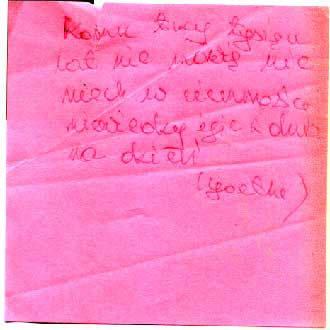 Komu trzy tysiące
lat nie mówią nic
niech w ciemności
niewiedzy żyje z dnia
na dzień
(Goethe)